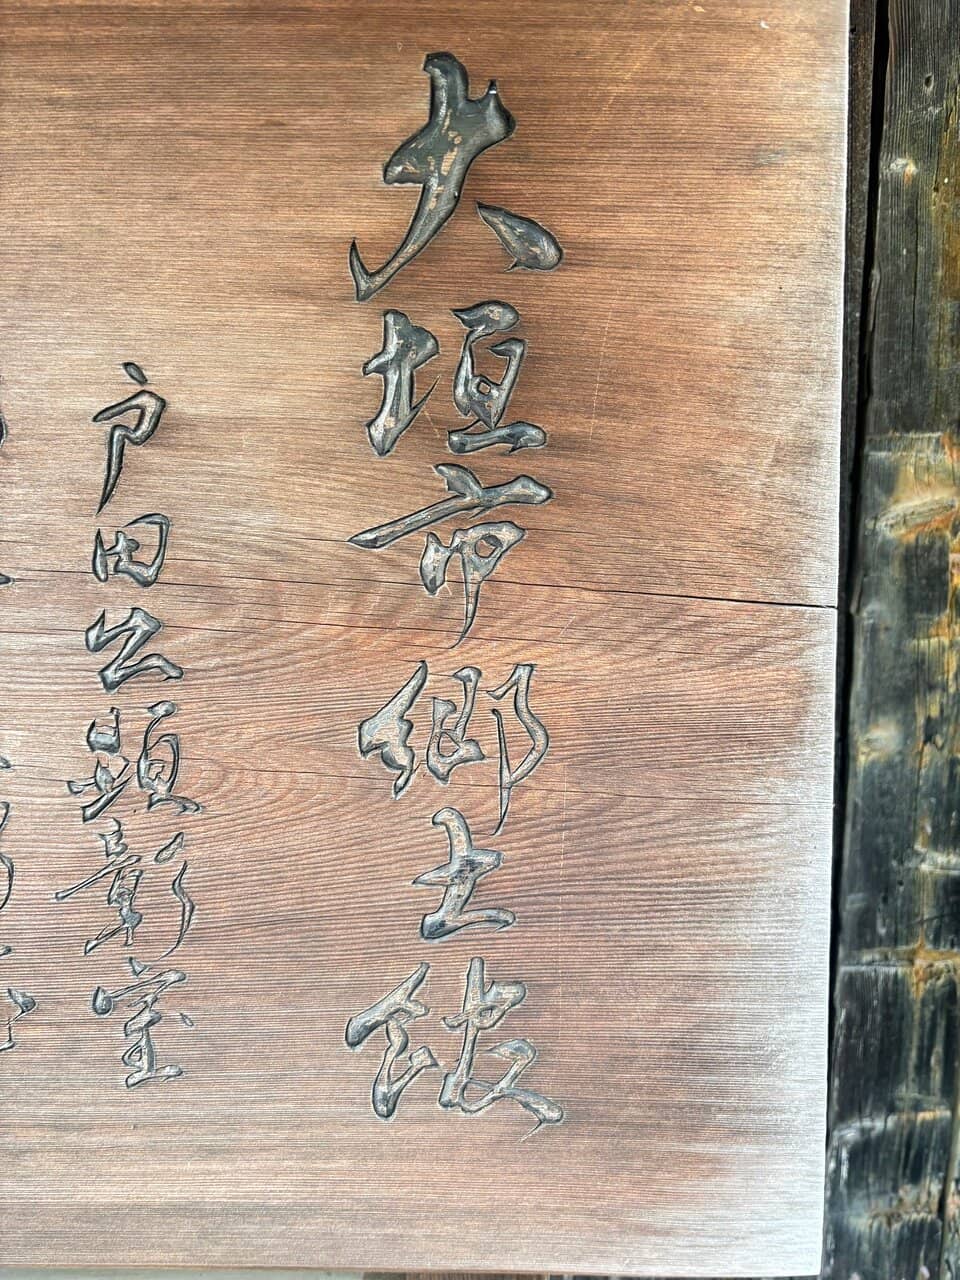 大垣市郷土館
戸田公顕彰室